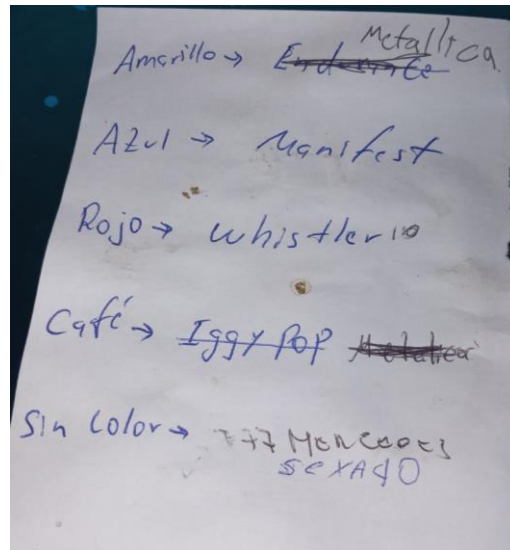 Amarillo → Endurante Metallica
Azul → Manifest
Rojo → Whistler 10
Café → Iggy Pop Metalica
Sin Color → 777 Mercedes
sexado